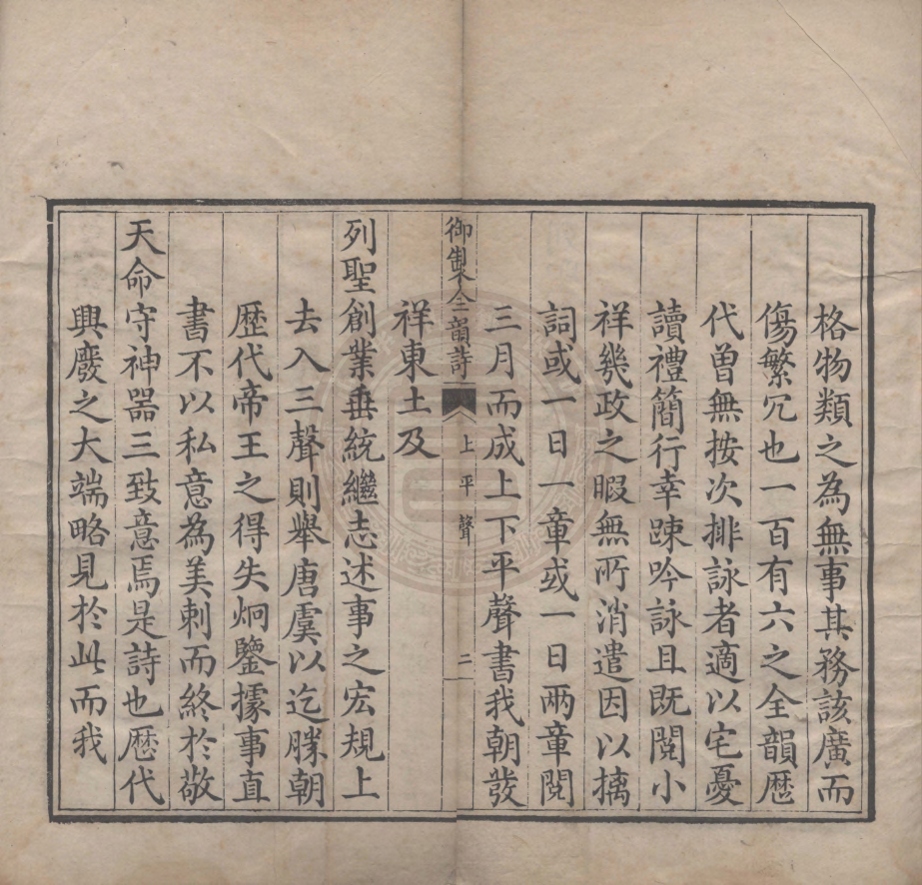 格物類之為無事其務該廣而
傷繁冗也一百有六之全韻歷
代曾無按次排詠者適以宅憂
讀禮簡行幸踈吟詠且既閱小
祥幾政之暇無所消遣因以摛
詞或一日一章或一日兩章閱
三月而成上下平聲書我朝發
祥東土及
御製全韻詩 上平聲 二
列聖創業垂統繼志述事之宏規上
去入三聲則舉唐虞以迄勝朝
歷代帝王之得失炯鑒據事直
書不以私意為美刺而終於敬
天命守神器三致意焉是詩也歷代
興廢之大端略見於此而我